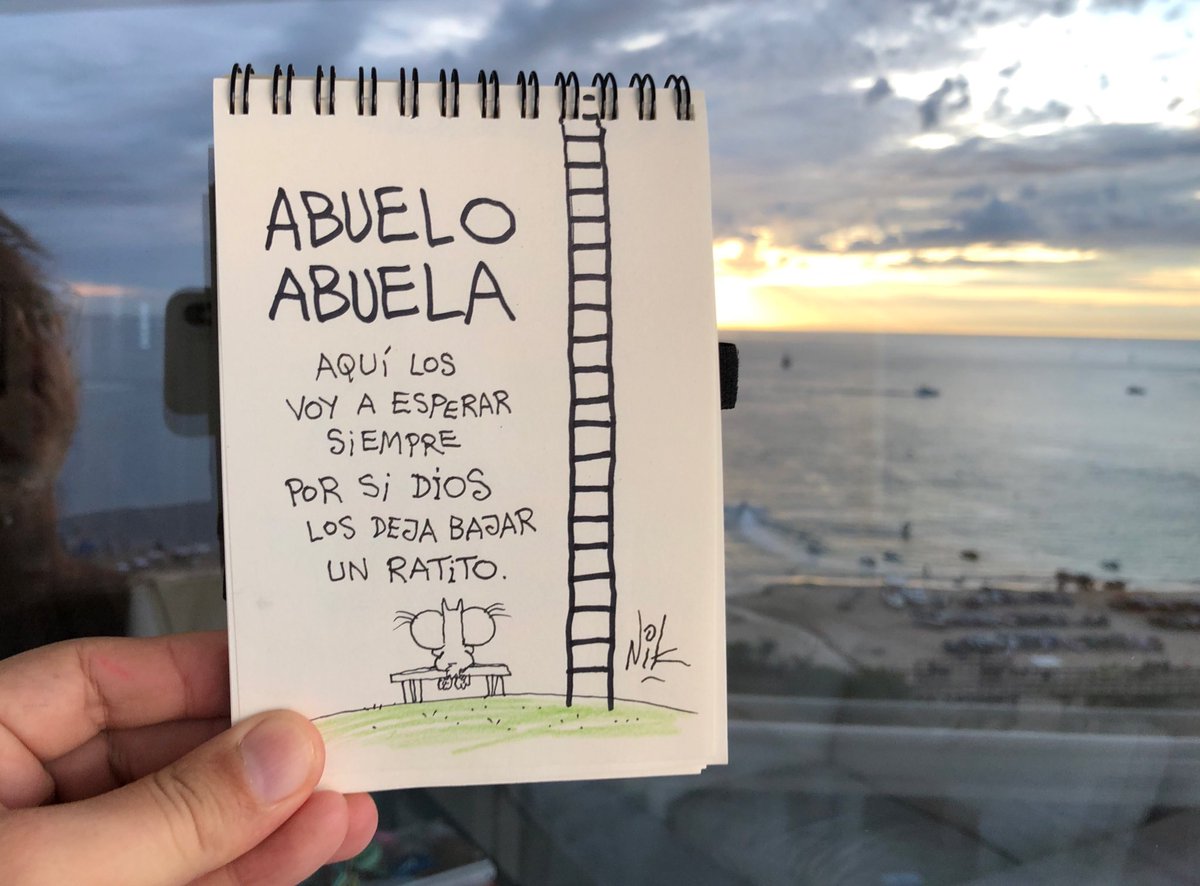 ABUELO
ABUELA
AQUÍ LOS
VOY A ESPERAR
SIEMPRE
POR SI DIOS
LOS DEJA BAJAR
UN RATITO.
NIK